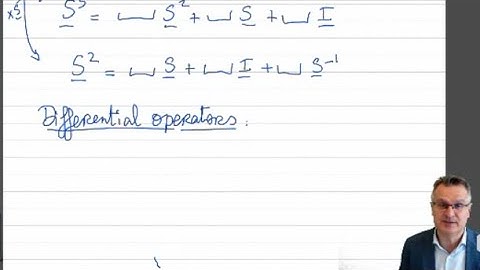 S³ = ⌴ S² + ⌴ S + ⌴ I
S² = ⌴ S + ⌴ I + ⌴ S⁻¹
Differential operators.